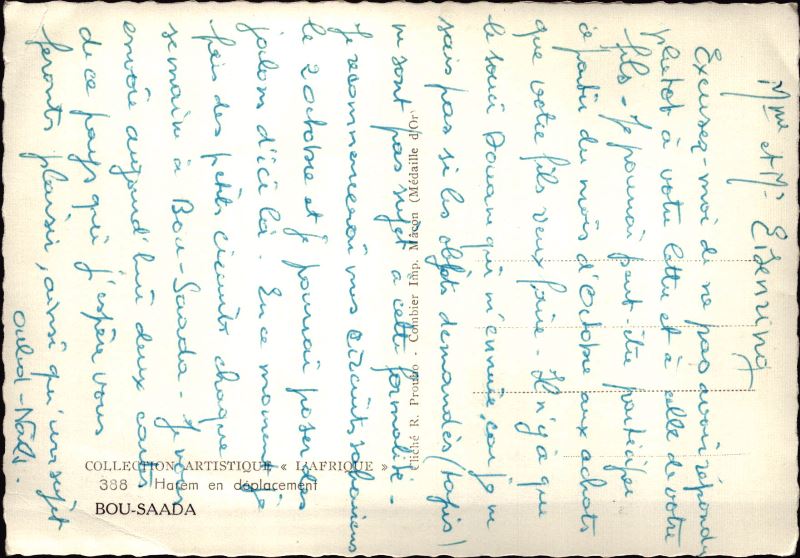 Mme et Mr Eisenring
Excusez-moi de ne pas avoir répondu
plutôt à votre lettre et à celle de votre
fils. Je pourrai peut-être participer
à partir du mois d'Octobre aux achats
que votre fils veux faire. Il n'y a que
le souci Douane qui m'ennuie, car je ne
sais pas si les objets demandés (tapis)
ne sont pas sujet à cette formalité.
Je recommencerai mes circuits sahariens
le 2 octobre et je pourrai poser des
jalons d'ici là. En ce moment je
fais des petits circuits chaque
semaine à Bou-Saada. Je vous
envoie aujourd'hui deux cartes
de ce pays qui j'espère vous
feront plaisir, ainsi qu'un sujet
Ouled-Naïls.
Cliché R. Prouho - Combier Imp. Mâcon (Médaille d'Or)
COLLECTION ARTISTIQUE « L'AFRIQUE »
388 Harem en déplacement
BOU-SAADA